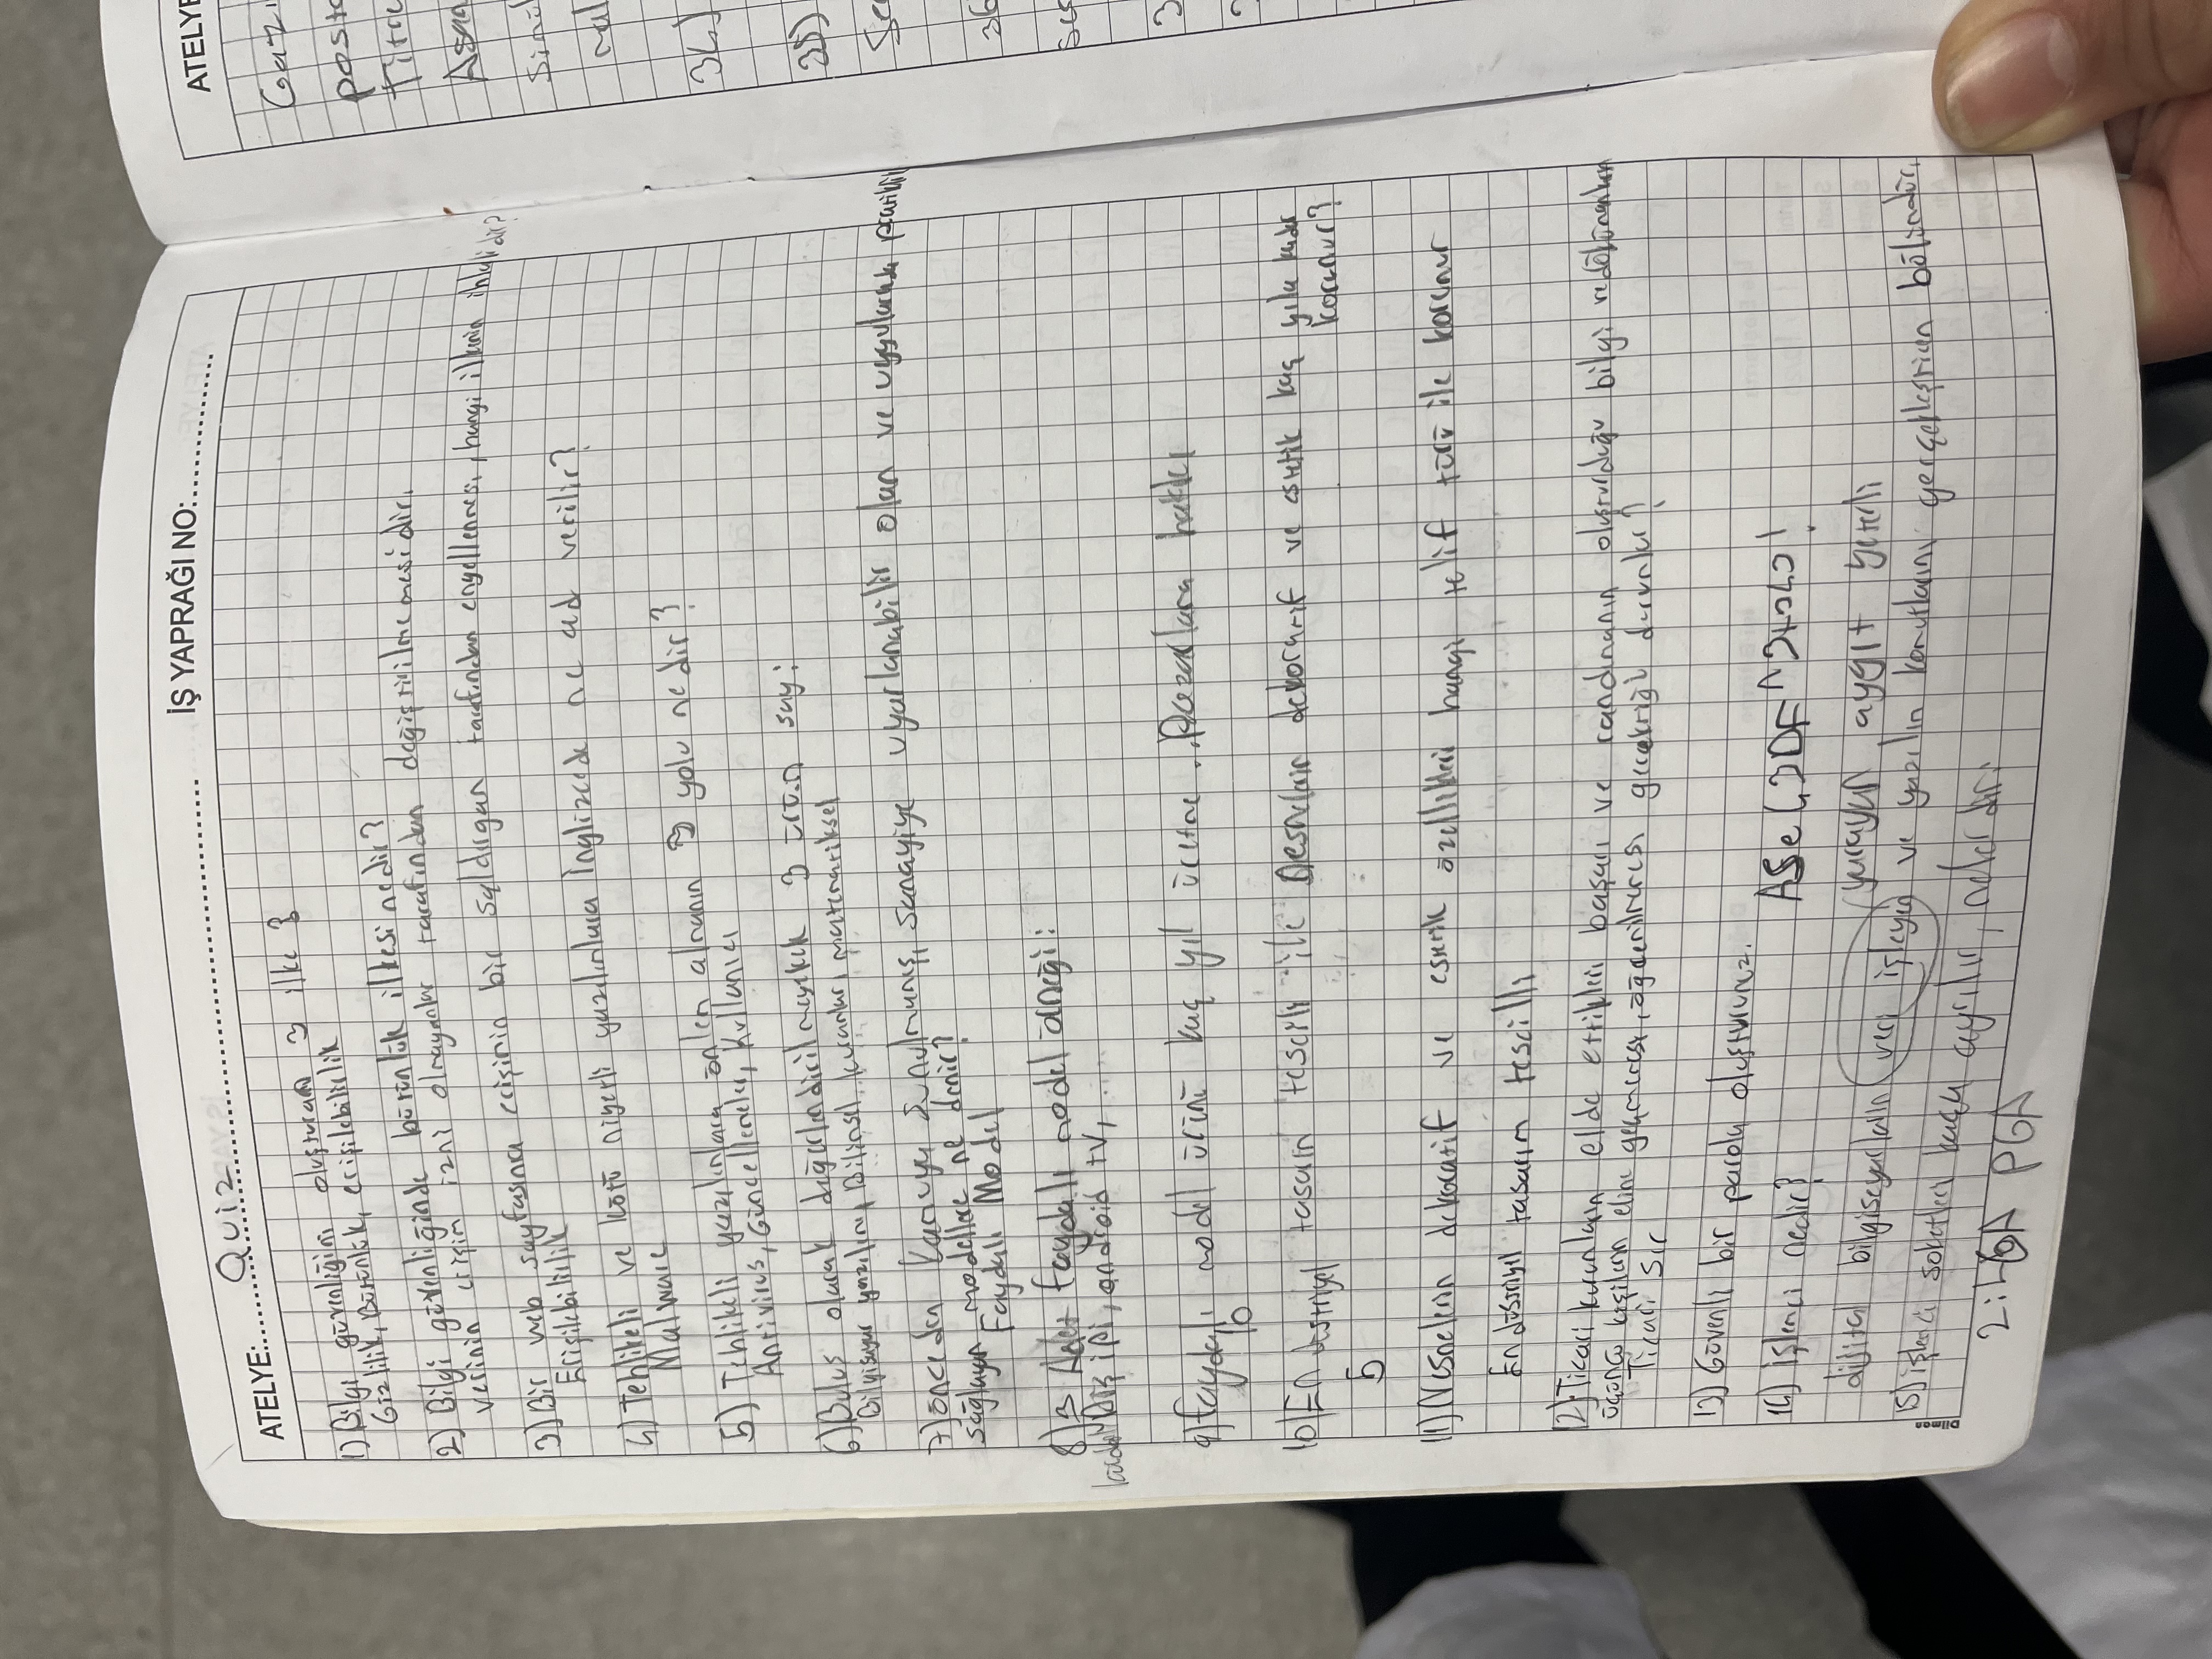 ATELYE: Quiz İŞ YAPRAĞI NO:
1) Bilgi güvenliğini oluşturan 3 ilke ?
Gizlilik, Bütünlük, erişilebilirlik
2) Bilgi güvenliğinde bütünlük ilkesi nedir?
verinin erişim izni olmayanlar tarafından değiştirilmemesidir.
3) Bir web sayfasına erişimin bir saldırgan tarafından engellenmesi, hangi ilkenin ihlalidir?
Erişilebilirlik
4) Tehlikeli ve kötü niyetli yazılımlara İnglizcede ne ad verilir?
Malware
5) Tehlikeli yazılımlara önlem almanın 3 yolu nedir?
Antivirüs, Güncellemeler, Kullanıcı
6) Buluş olarak değerlendirilmeyecek 3 ürün say:
Bilgisayar yazılımı, Bilimsel kuramlar, matematiksel
7) önceden Kamuya Sunulmamış, sanayiye uyarlanabilir olan ve uygulamada pratiklik
sağlayan modellere ne denir?
Faydalı Model
8) 3 Adet faydalı model örneği:
Diş ipi, android tv, ....
9) faydalı model ürünü kaç yıl üretme .. Pazarlama hakkı
10
10) Endüstriyel tasarım tescili ile Nesnelerin dekoratif ve estetik kaç yıla kadar
korunur?
5
11) Nesnelerin dekoratif ve estetik özellikleri hangi telif türü ile korunur
Endüstriyel tasarım tescilli
12) Ticari kurumların elde ettikleri başarı ve randımanın oluşturduğu bilgi ve dökümanların
üçüncü kişilerin eline geçmemesi, öğrenilmemesi gerektiği durumlar?
Ticari Sır
13) Güvenli bir parola oluşturunuz.
14) işlemci nedir?
yarayan aygıt yeterli
dijital bilgisayarların veri işleyen ve yazılım komutlarını gerçekleştiren bölümdür.
15) işlemci soketleri kaça ayrılır, nelerdir;
2: LGA PGA
Dilman
ATELYE
Gazi
Asa
34)
35)
36
3